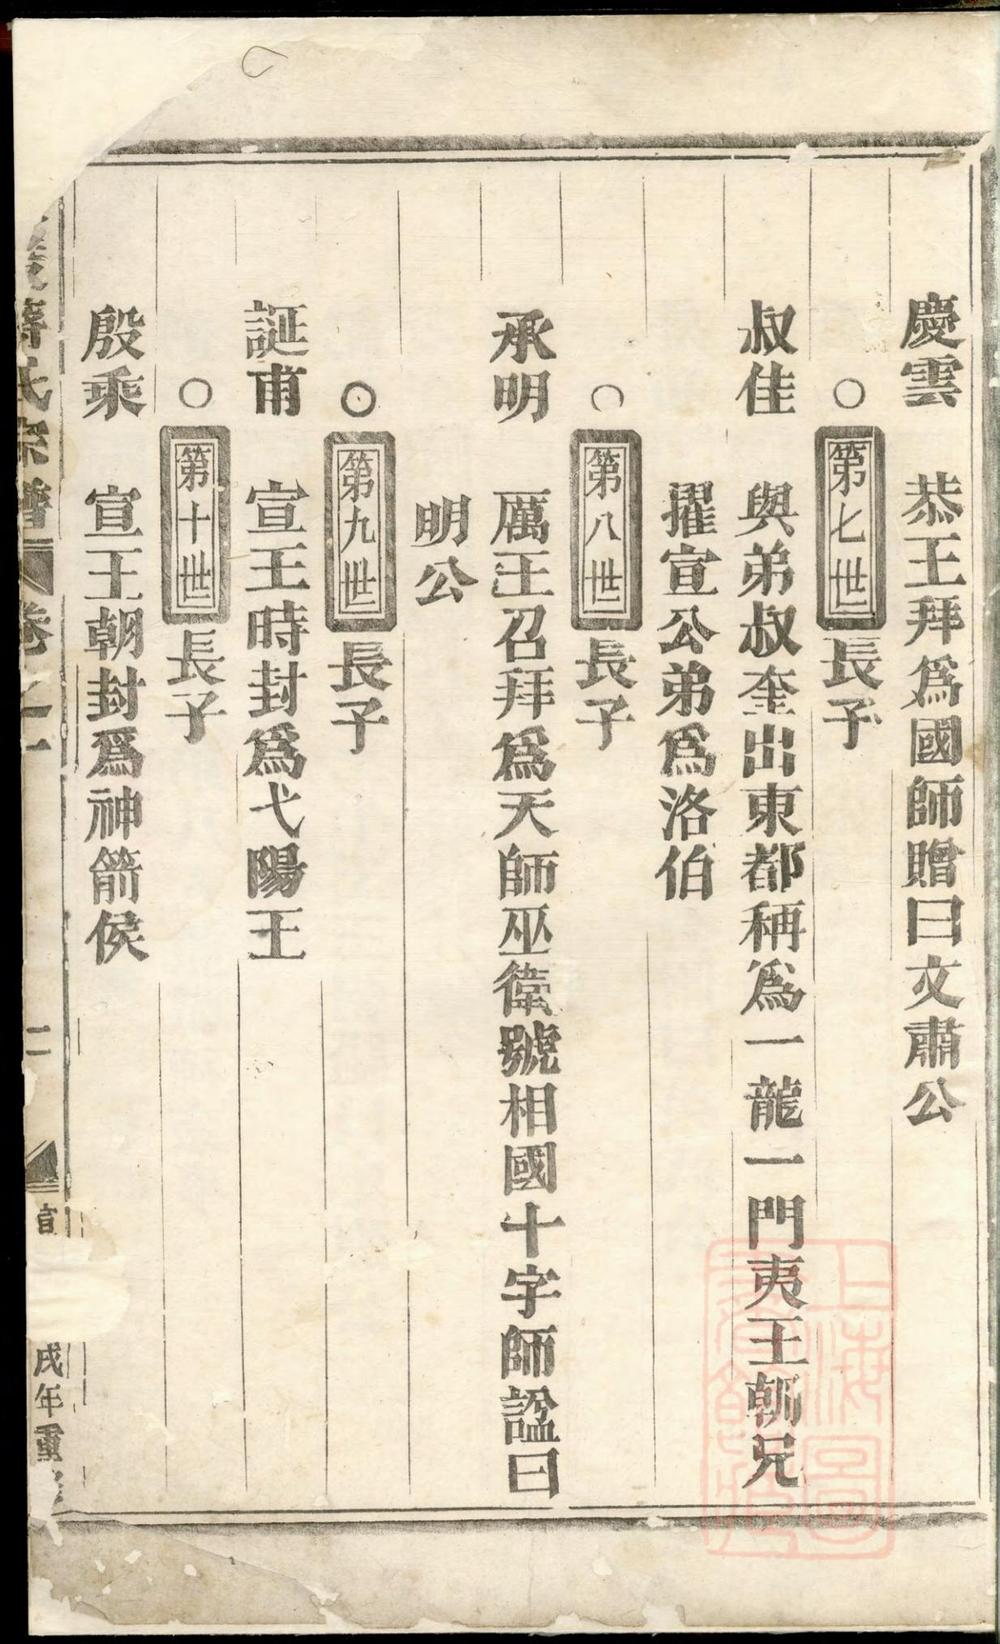 慶雲　恭王拜爲國師贈曰文肅公
○第七世長子
叔佳　與弟叔奎出東都稱爲一龍一門夷王朝兄
擢宣公弟爲洛伯
○第八世長子
承明　厲王召拜爲天師巫衛號相國十字師諡曰
明公
○第九世長子
誕甫　宣王時封爲弋陽王
○第十世長子
殷乘　宣王朝封爲神箭侯
蔣氏宗譜　卷之一　二　宣　戌年重
上海圖